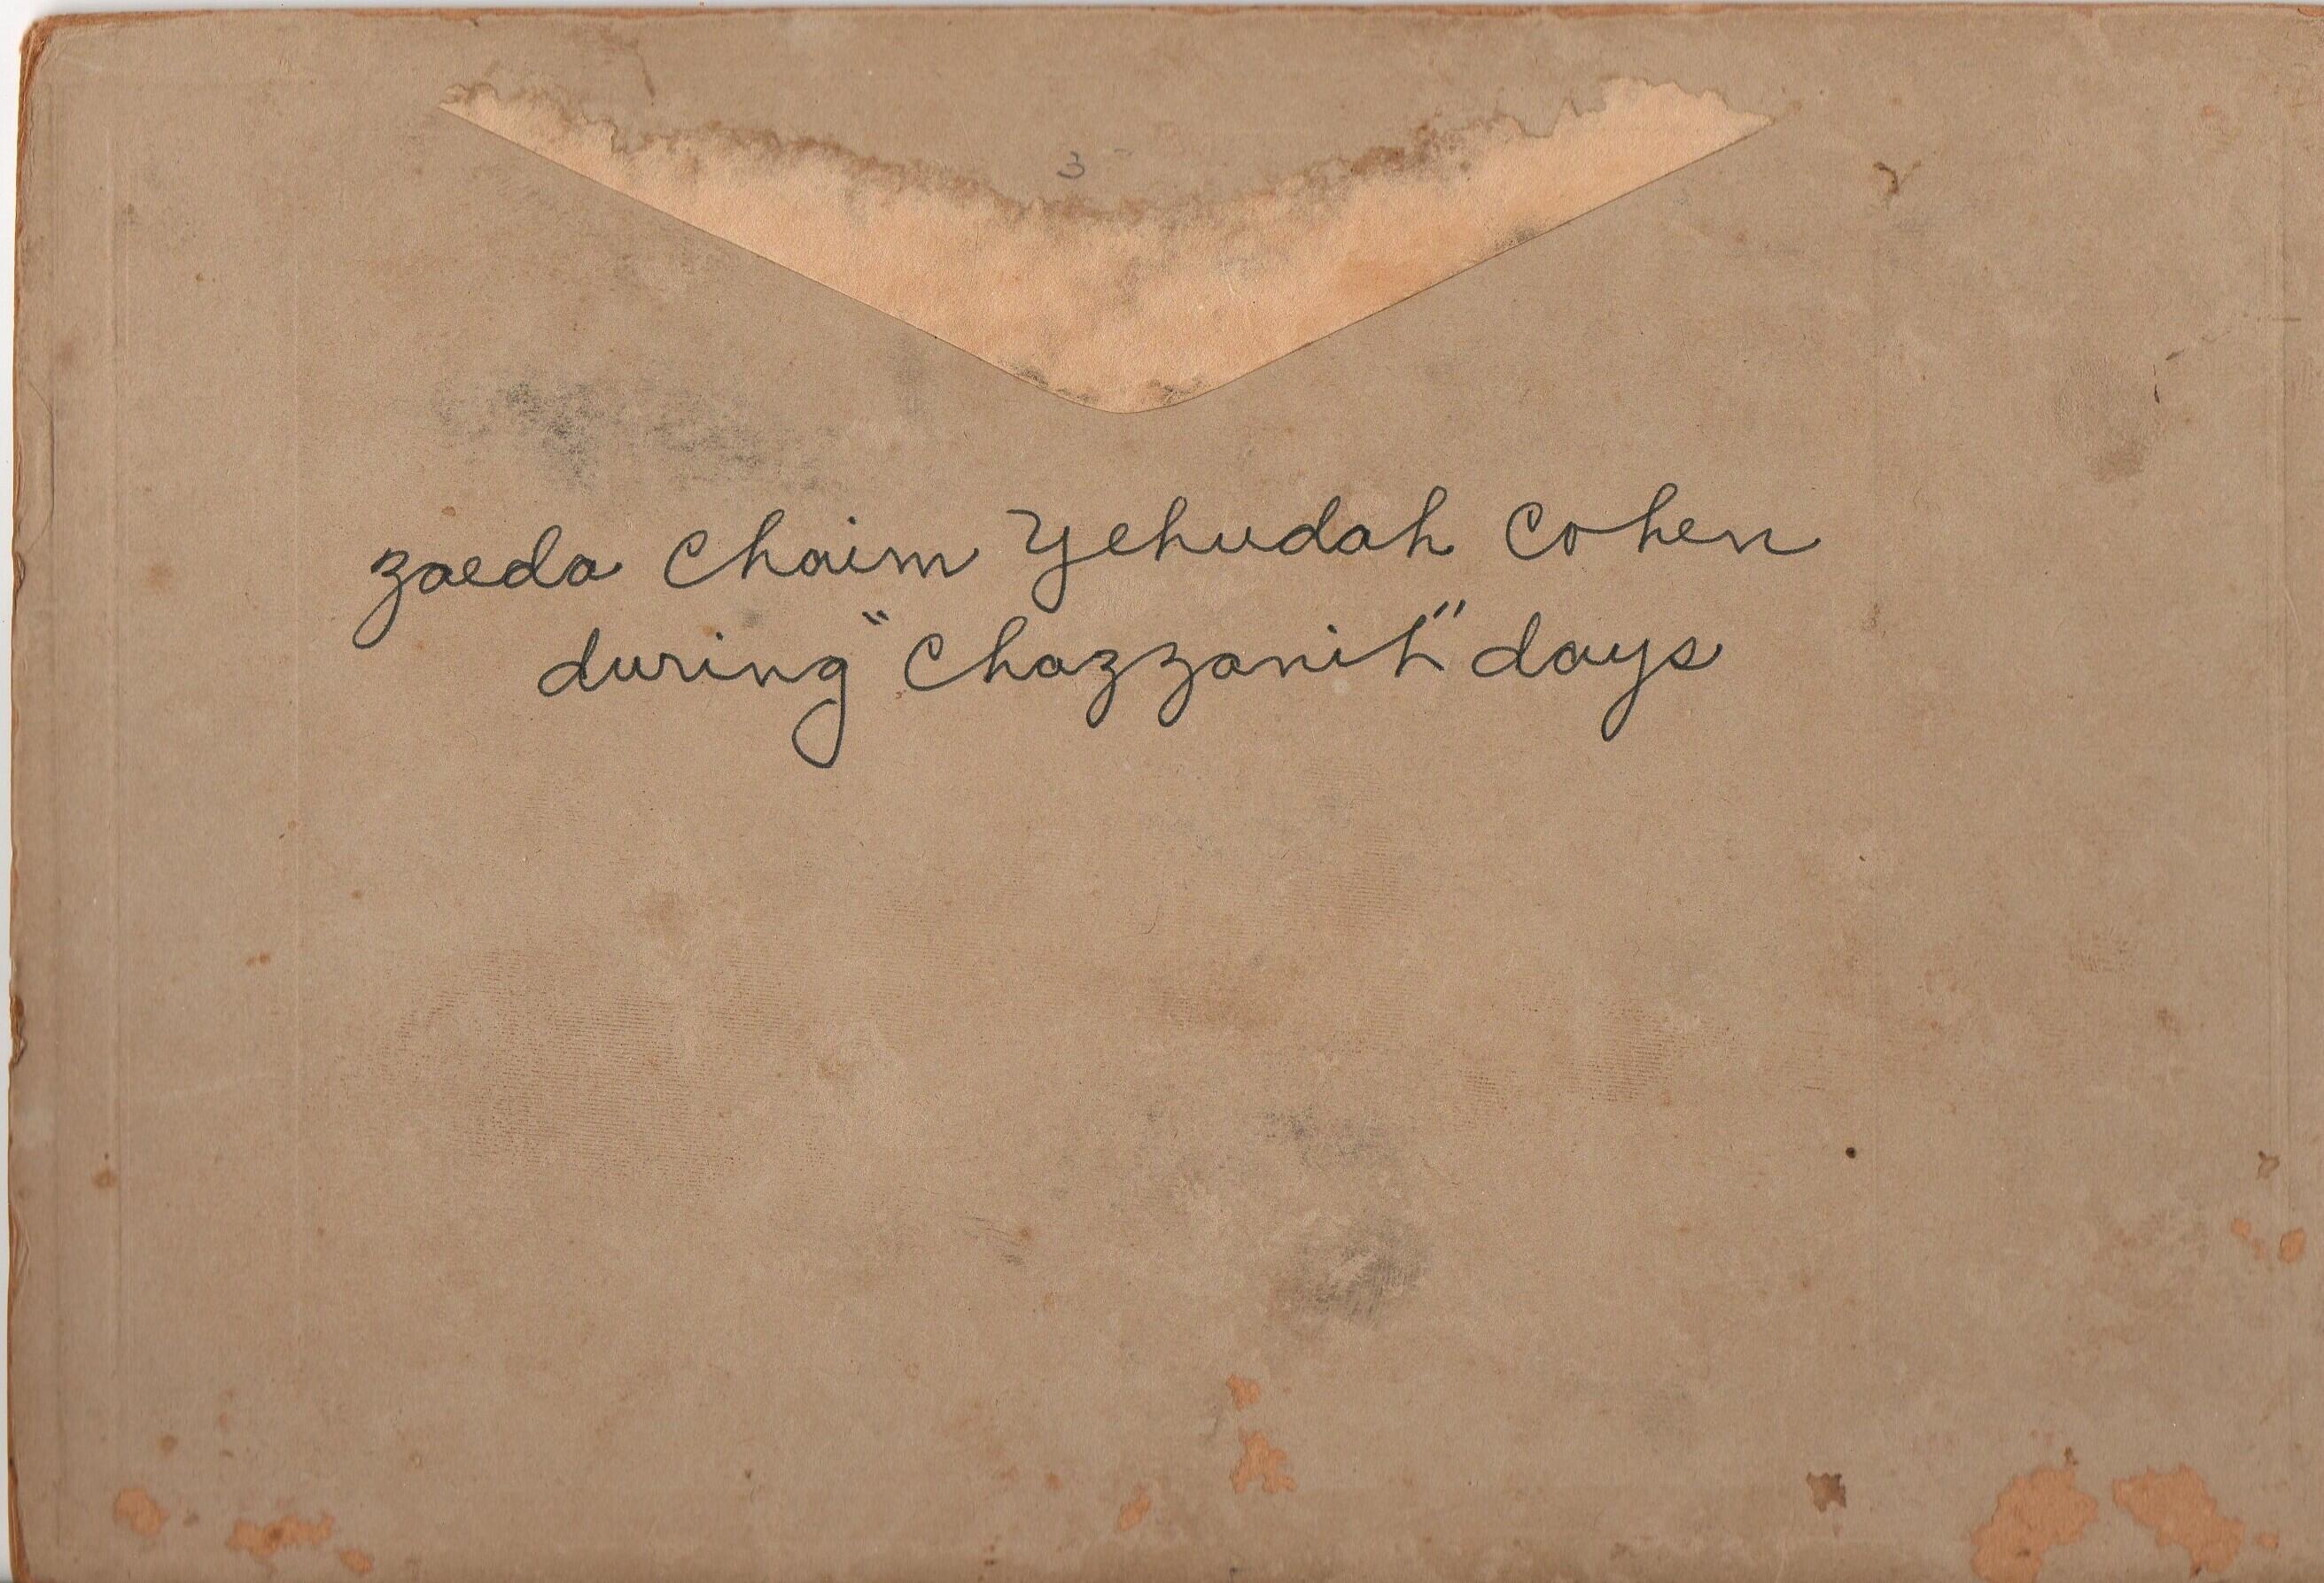 3-
zaeda Chaim Yehudah Cohen
during "Chazzanit" days